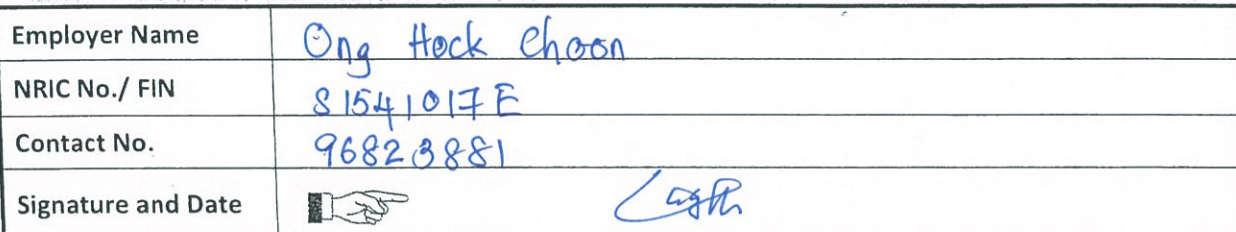 Employer Name Ong Hock Choon
NRIC No./ FIN S1541017E
Contact No. 96823881
Signature and Date